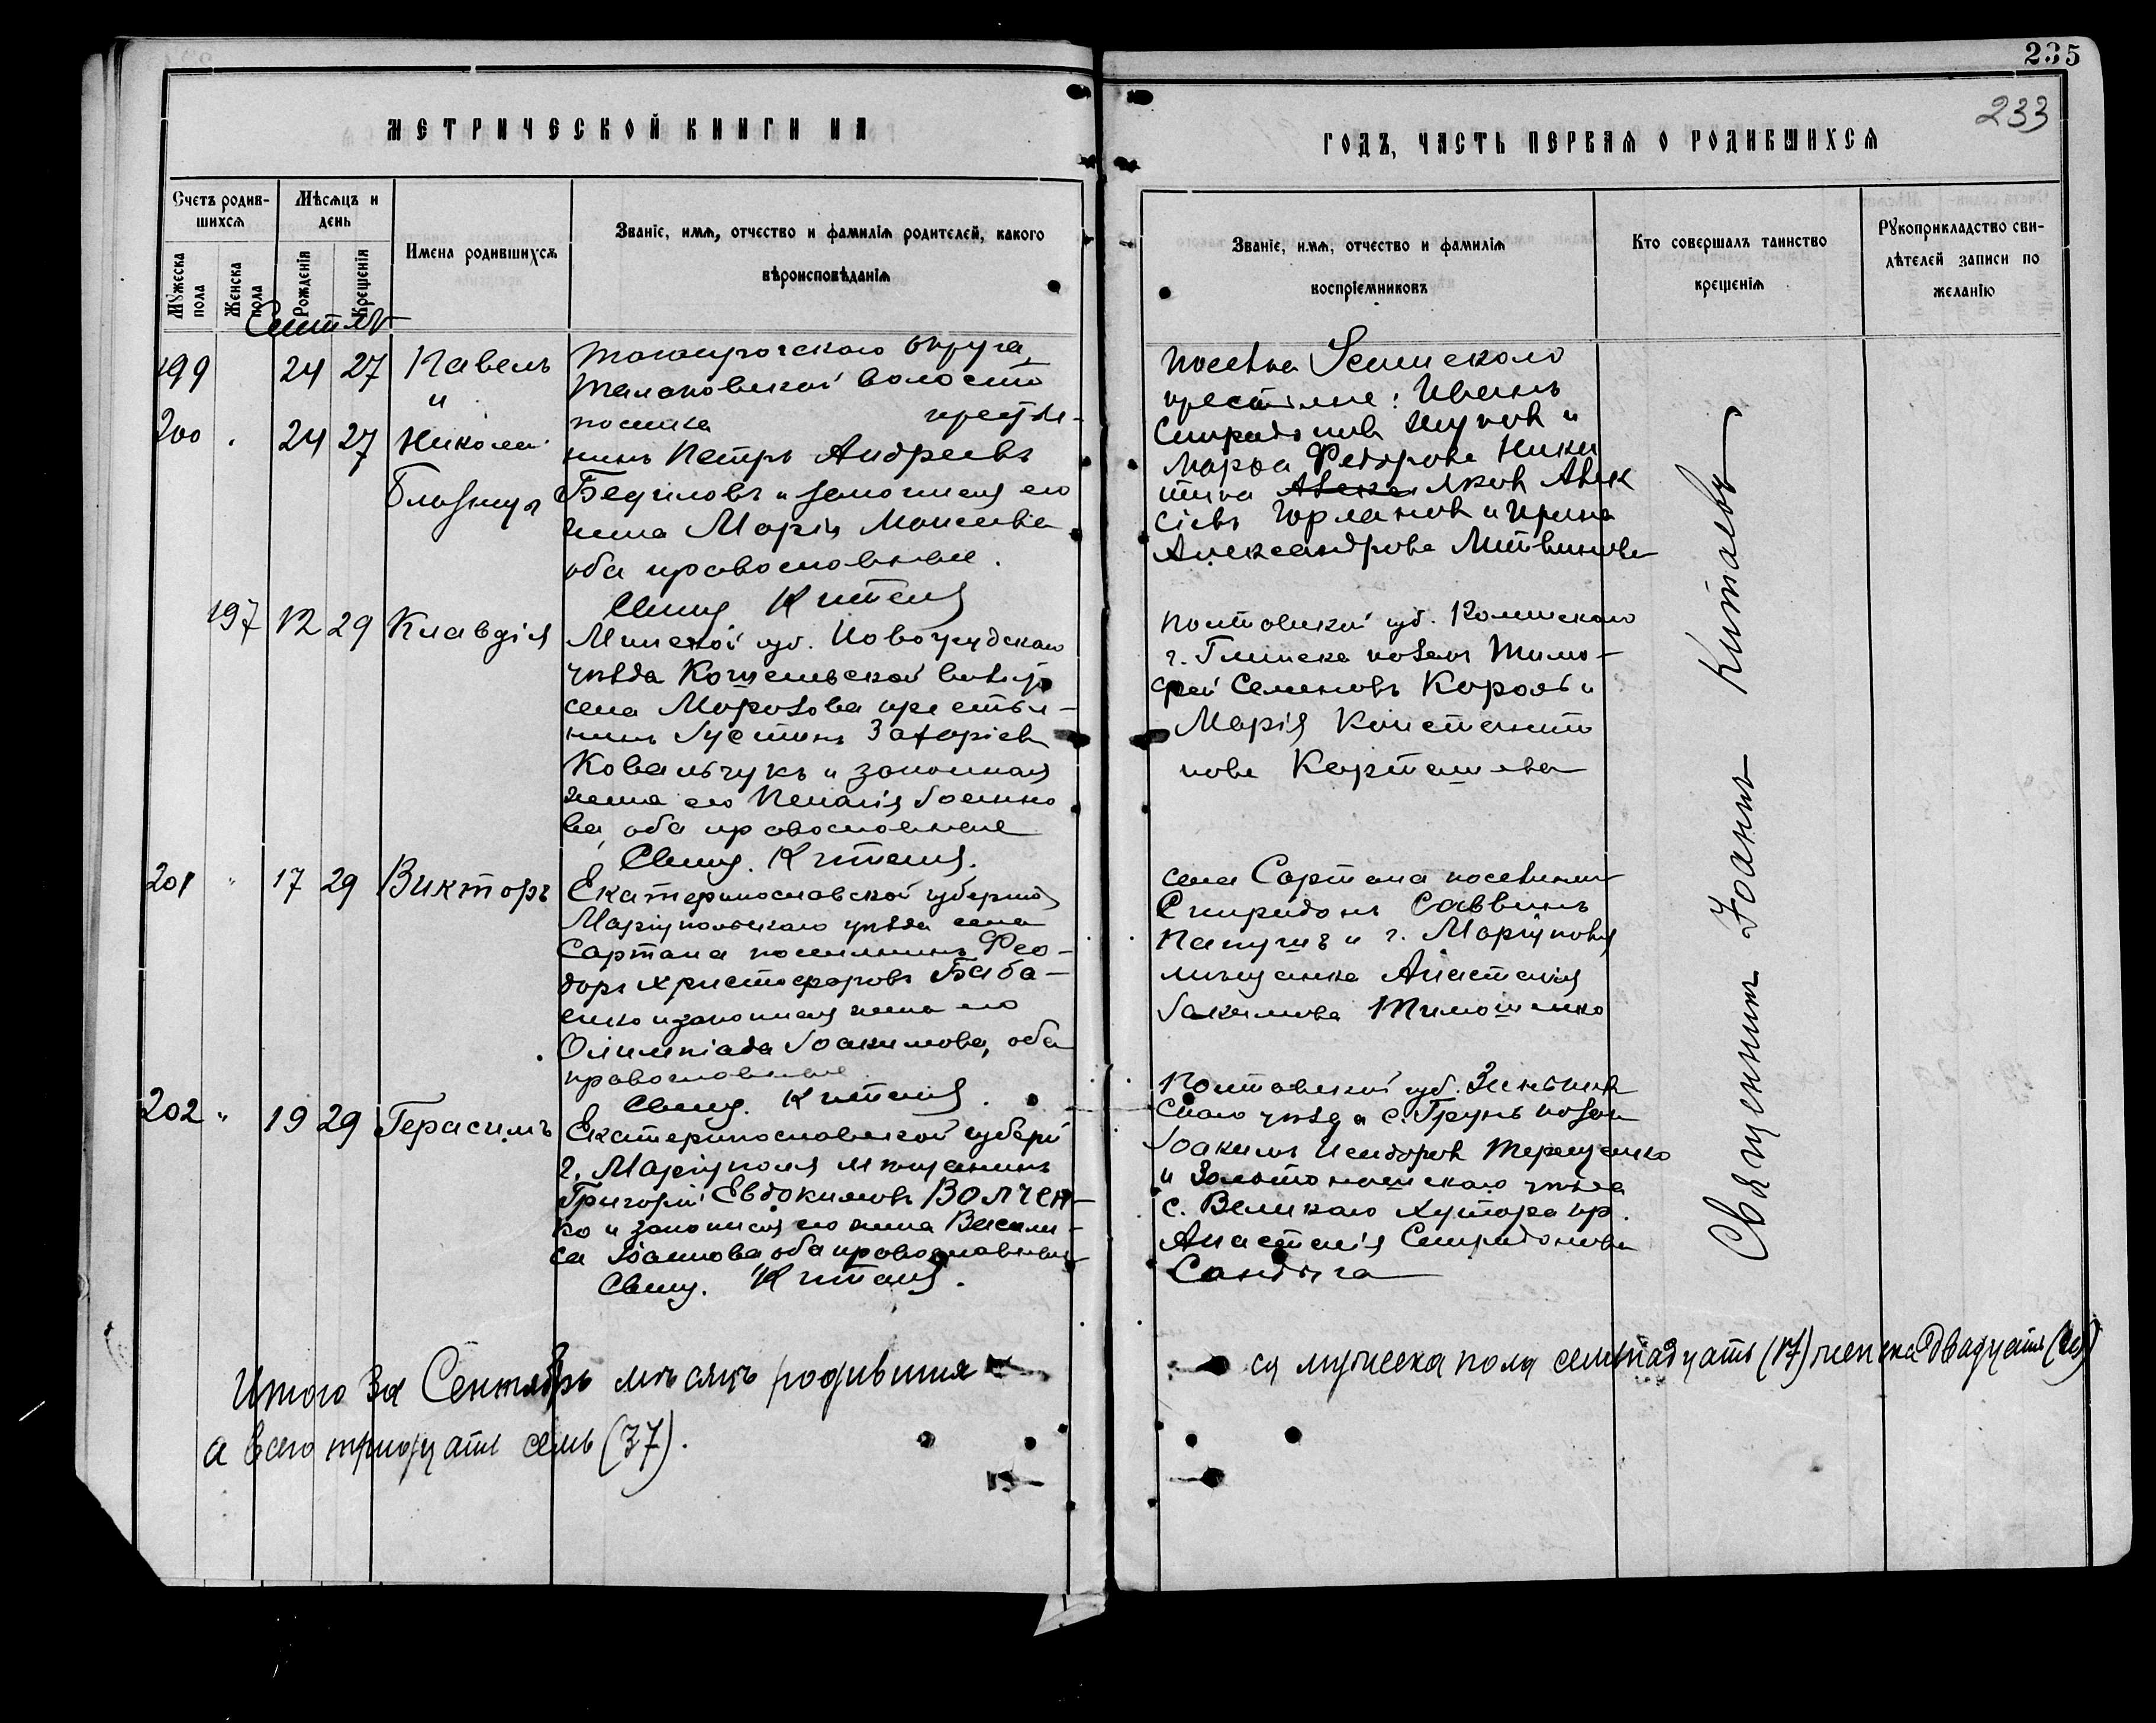 235
233
МЕТРИЧЕСКОЙ КНИГИ НА
ГОДЪ, ЧАСТЬ ПЕРВАЯ О РОДИВШИХСЯ
Счетъ родив-
шихся
Мѣсяцъ и
день
Мужеска пола
Женска пола
Рожденія
Крещенія
Имена родившихся
Званіе, имя, отчество и фамилія родителей, какого
вѣроисповѣданія
Званіе, имя, отчество и фамилія
воспріемниковъ
Кто совершалъ таинство
крещенія
Рукоприкладство сви-
дѣтелей записи по
желанію
199 24 27 Павелъ
и
200 24 27 Николай
Близнецы
округа,
волости
Петръ Андреевъ
и законная его
жена Марія Моисеева
оба православные.
Свящ. Китаевъ
Иванъ
Спиридоновъ и
Марѳа Федорова Ники
тина Яковъ Алек
сѣевъ Горлановъ и Ирина
Александрова Литвинова
197 12 29 Клавдія
Минской губ. Новогрудскаго
уѣзда
села Морозова крестья-
нинъ Іустинъ Захаріевъ
Ковальчукъ и законная
жена его Пелагія Іоанно
ва, оба православные
Свящ. Китаевъ.
Полтавской губ. Роменскаго
г. Глинска козакъ Тимо-
фей Семеновъ Король и
Марія Константи
нова Карташева
201 " 17 29 Викторъ
Екатеринославской губерніи
Маріупольскаго уѣзда села
Сартана поселянинъ Фео-
доръ Христофоровъ Баба-
енко и законная жена его
Олимпіада Іоакимова, оба
православные
Свящ. Китаевъ.
села Сартана поселянинъ
Спиридонъ Саввинъ
Папушъ и г. Маріуполя
мѣщанка Анастасія
Іакимова Тимошенко
202 " 19 29 Герасимъ
Екатеринославской губерн
г. Маріуполя мѣщанинъ
Григорій Евдокимовъ Волчен-
ко и законная его жена Васили-
са Іоаннова оба православные
Свящ. Китаевъ.
Полтавской губ. Зеньков
скаго уѣзда с. Грунь козакъ
Іоакимъ Исидоровъ Терещенко
и Золотоношскаго уѣзда
с. Великаго Хутора кр.
Анастасія Спиридонова
Сандыга
Священникъ Іоаннъ Китаевъ
Итого за Сентябрь мѣсяцъ родивших
ся мужеска пола семнадцать (17) женска двадцать (20)
а всего тридцать семь (37).